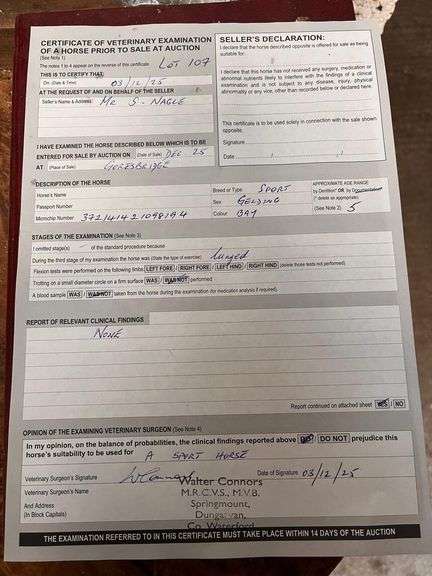 CERTIFICATE OF VETERINARY EXAMINATION
OF A HORSE PRIOR TO SALE AT AUCTION
(See Note 1)
The notes 1 to 4 appear on the reverse of this certificate
LOT 107
THIS IS TO CERTIFY THAT:
On: (Date & Time) 03/12/25
AT THE REQUEST OF AND ON BEHALF OF THE SELLER
Seller's Name & Address: Mr S. NAGLE
I HAVE EXAMINED THE HORSE DESCRIBED BELOW WHICH IS TO BE
ENTERED FOR SALE BY AUCTION ON (Date of Sale) DEC 25
AT (Place of Sale) GORESBRIDGE
SELLER'S DECLARATION:
I declare that the horse described opposite is offered for sale as being
suitable for:
I declare that this horse has not received any surgery, medication or
abnormal nutrients likely to interfere with the findings of a clinical
examination and is not subject to any disease, injury, physical
abnormality or any vice, other than recorded below or declared here.
This certificate is to be used solely in connection with the sale shown
opposite.
Signature
Date
DESCRIPTION OF THE HORSE
Horse's Name
Passport Number
Microchip Number
Breed or Type SPORT
Sex GELDING
Colour BAY
APPROXIMATE AGE RANGE
by Dentition* OR by Documentation*
(* delete as appropriate)
(See Note 2) 5
STAGES OF THE EXAMINATION (See Note 3)
I omitted stage(s) of the standard procedure because
During the third stage of my examination the horse was (State the type of exercise) lunged
Flexion tests were performed on the following limbs LEFT FORE / RIGHT FORE / LEFT HIND / RIGHT HIND (delete those tests not performed)
Trotting on a small diameter circle on a firm surface WAS / WAS NOT performed
A blood sample WAS / WAS NOT taken from the horse during the examination (for medication analysis if required).
REPORT OF RELEVANT CLINICAL FINDINGS
NONE
Report continued on attached sheet YES / NO
OPINION OF THE EXAMINING VETERINARY SURGEON (See Note 4)
In my opinion, on the balance of probabilities, the clinical findings reported above DO / DO NOT prejudice this
horse's suitability to be used for A SPORT HORSE
Veterinary Surgeon's Signature
Date of Signature 03/12/25
Veterinary Surgeon's Name
And Address
(In Block Capitals)
Walter Connors
M.R.C.V.S., M.V.B.
Springmount,
Dungarvan,
Co. Waterford
THE EXAMINATION REFERRED TO IN THIS CERTIFICATE MUST TAKE PLACE WITHIN 14 DAYS OF THE AUCTION